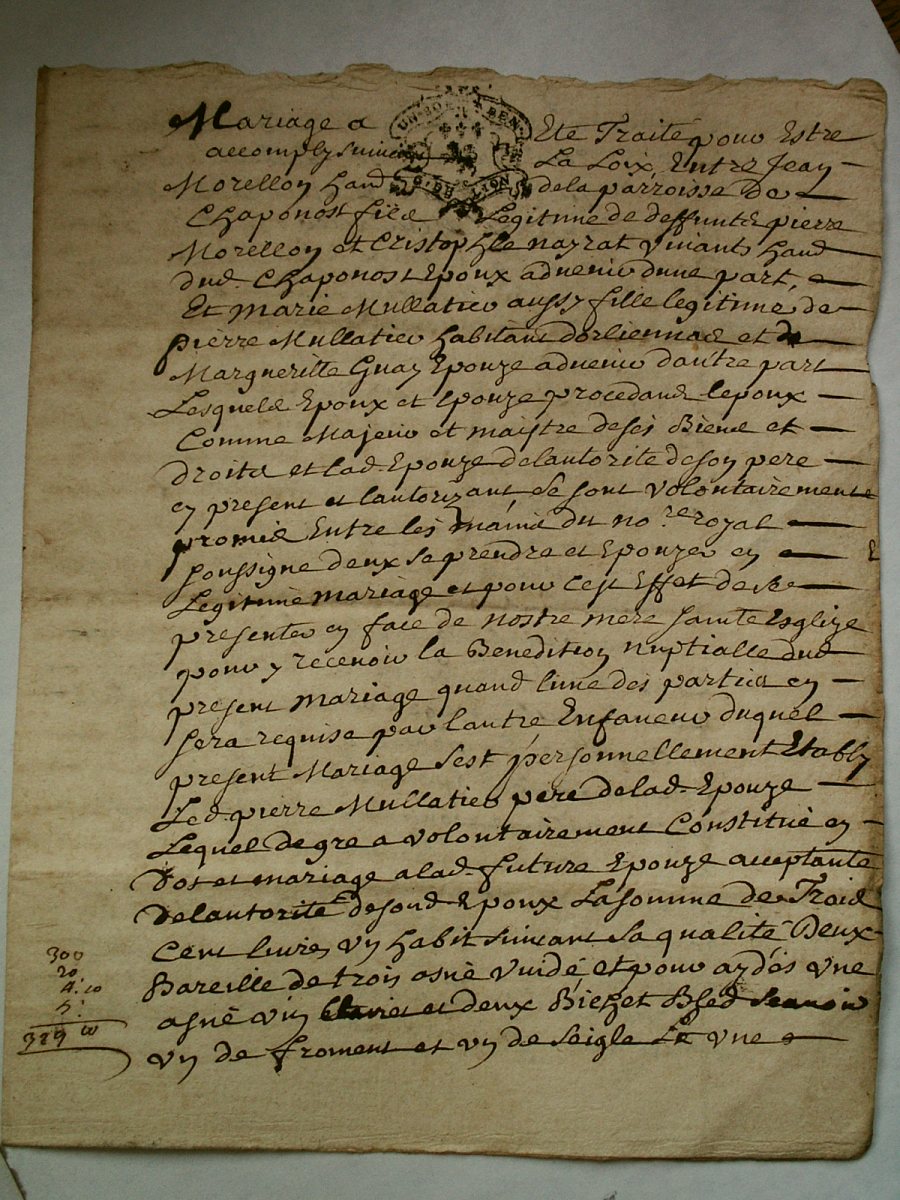 Mariage a Eté Traité pour Estre
accomply suivant La Loix, Entre Jean
Morellon habt de la parroisse De
Chaponost fils Legitime de deffunts pierre
Morellon et Cristophle nayrat vivants habt
dud. Chaponost Epoux advenir dune part,
Et Marie Mullatier aussy fille legitime de
pierre Mullatier habitant dorliennas et de
Margueritte Guay Epouze advenir dautre part
Lesquels Epoux et Epouze procedant lepoux
Comme Majeur et maistre de ses Biens et
droits et lad. Epouze de lautorité de son pere
cy present et lautorizant se sont volontairement
promis Entre les mains du no.re royal
soussigné deux se prendre et Epouzer en
Legitime mariage et pour cest Effet de se
presenter en face de nostre mere sainte Esglize
pour y recevoir la Benedition nuptialle dud
present mariage quand lune des parties en
sera requise par lautre Enfaveur duquel
present Mariage sest personnellement Etably
Led. pierre Mullatier pere de lad. Epouze
Lequel de gre a volontairement Constitué en
Dot et mariage a lad. future Epouze acceptante
De lautorité de sond. Epoux La somme de Trois
Cent livres vn habit suivant sa qualité Deux
Bareille de trois asné vuidé et pour aydés vne
asné vin et deux Bichet Bled
vn de froment et vn de seigle vne
300
20
4: 10
5:
329 10